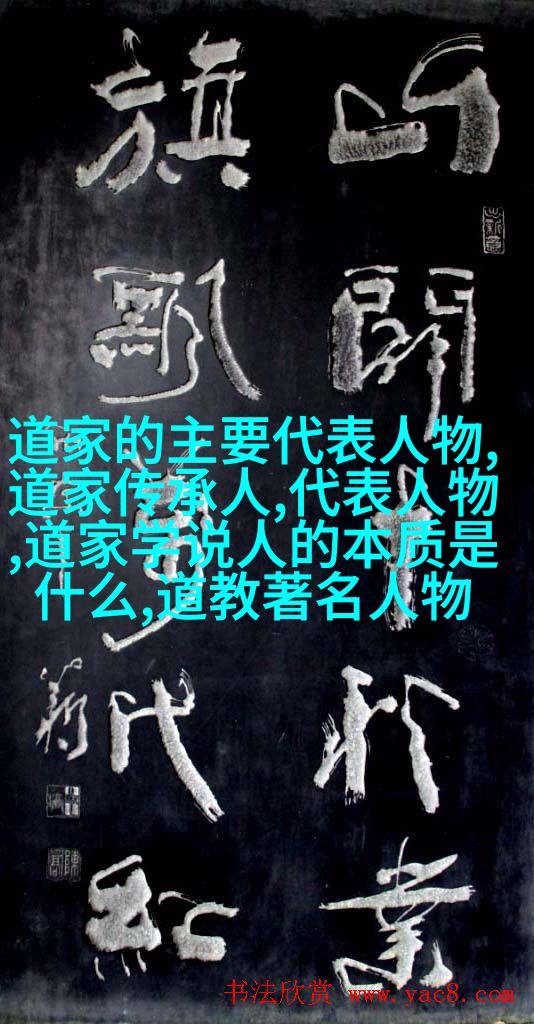 開千秋業
旗飘万代红
道家的主要代表人物,
道家传承人,代表人物
,道家学说人的本质是
什么,道教著名人物
书法欣赏 www.yac8.com